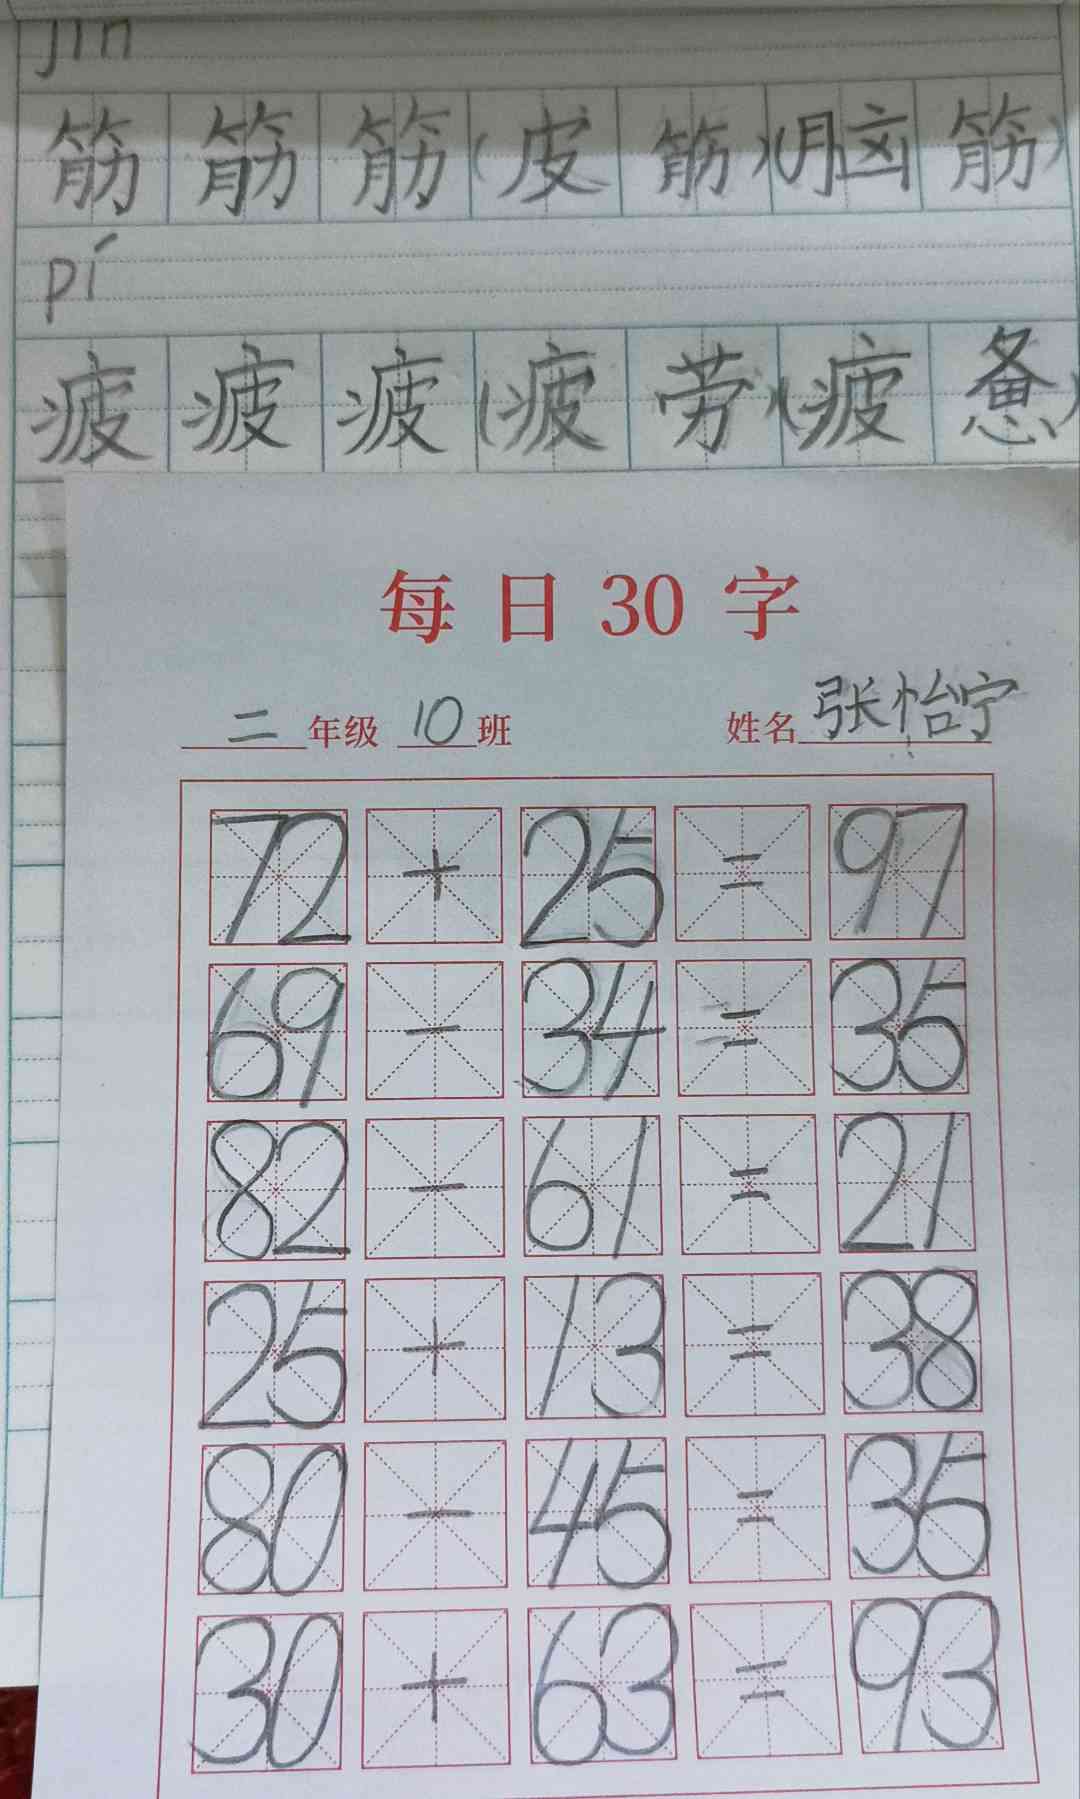 jīn
筋 筋 筋 (皮 筋) (脑 筋)
pí
疲 疲 疲 (疲 劳) (疲 惫)
每日30字
二 年级 10 班 姓名 张怡宁
72 + 25 = 97
69 - 34 = 35
82 - 61 = 21
25 + 13 = 38
80 - 45 = 35
30 + 63 = 93